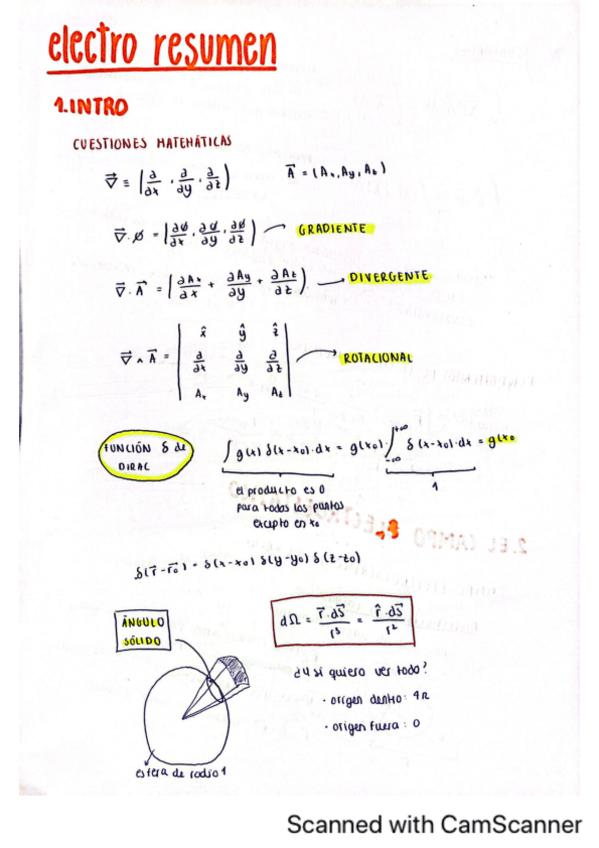 electro resumen
1. INTRO
CUESTIONES MATEMÁTICAS
∇⃗ ≡ (∂/∂x, ∂/∂y, ∂/∂z)    A⃗ = (Ax, Ay, Az)
∇⃗·Ø = (∂Ø/∂x, ∂Ø/∂y, ∂Ø/∂z) → GRADIENTE
∇⃗·A⃗ = (∂Ax/∂x + ∂Ay/∂y + ∂Az/∂z) → DIVERGENTE
∇⃗ ∧ A⃗ = | x̂ ŷ ẑ | ∂/∂x ∂/∂y ∂/∂z | Ax Ay Az | → ROTACIONAL
FUNCIÓN δ de DIRAC
∫ g(x) δ(x-x0)·dx = g(x0)·∫_{-∞}^{+∞} δ(x-x0)·dx = g(x0
el producto es 0
para todos los puntos
excepto en x0
1
δ(r⃗-r⃗0) = δ(x-x0) δ(y-y0) δ(z-z0)
ÁNGULO
SÓLIDO
dΩ = r⃗·dS⃗/r³ = r̂·dS⃗/r²
¿y si quiero ver todo?
· origen dentro: 4π
· origen fuera: 0
esfera de radio 1
2. EL CAMPO ELECTRO
Scanned with CamScanner